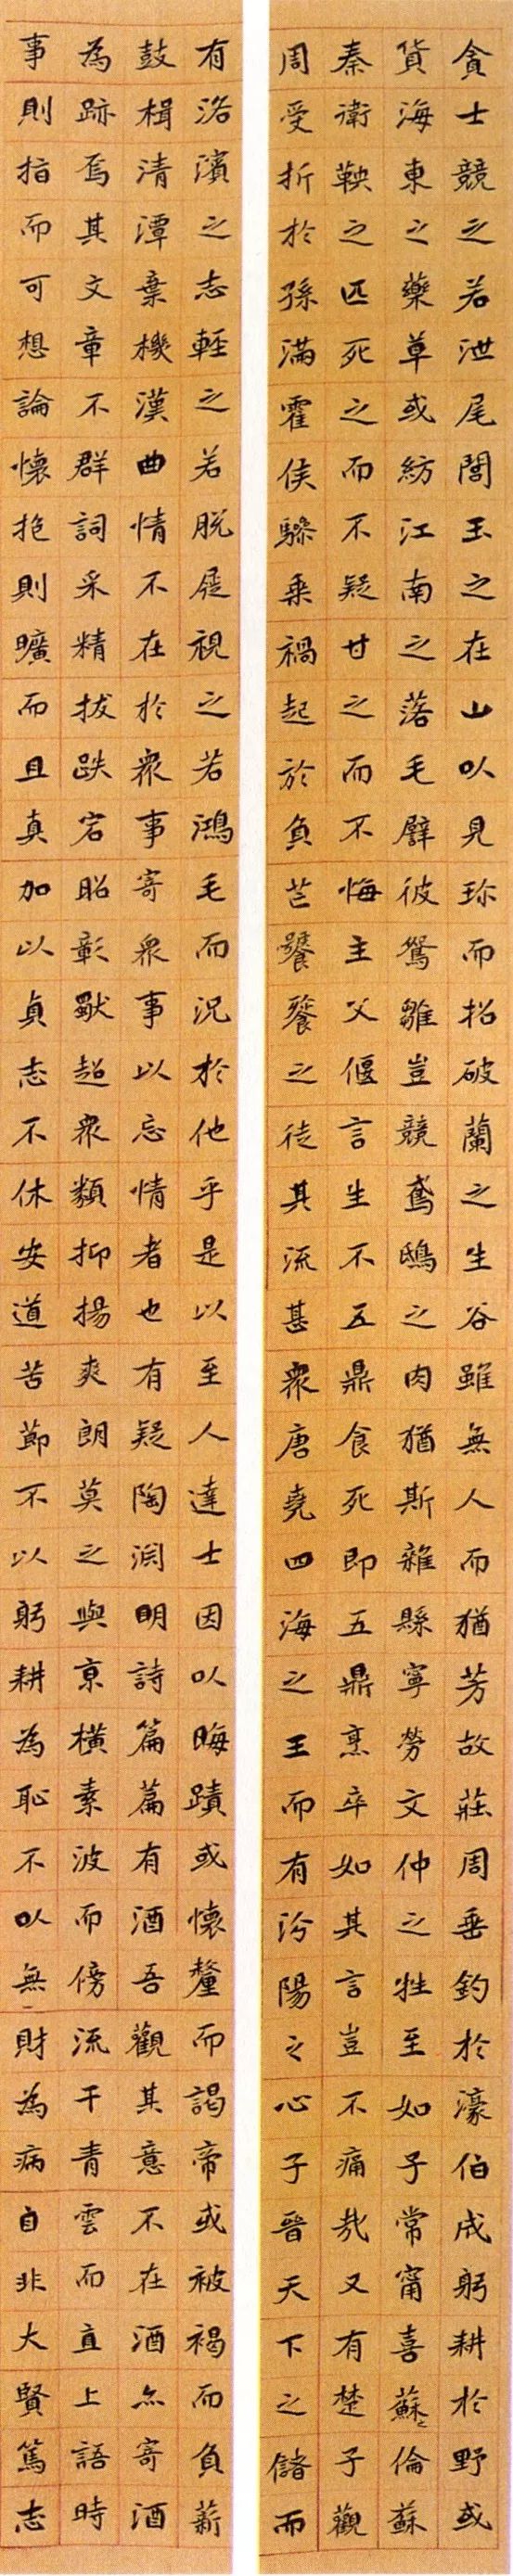 貪士競之若泄尾閭玉之在山以見珍而招破蘭之生谷雖無人而猶芳故莊周垂釣於濠伯成躬耕於野或
貨海東之藥草或紡江南之落毛譬彼鴛雛豈競鳶鴟之肉猶斯雜縣寧勞文仲之牲至如子常甯喜蘇倫蘇
秦衛鞅之匹死之而不疑甘之而不悔主父偃言生不五鼎食死即五鼎烹卒如其言豈不痛哉又有楚子觀
周受折於孫滿霍侯驂乘禍起於負芒饕餮之徒其流甚眾唐堯四海之王而有汾陽之心子晉天下之儲而
有洛濱之志輕之若脫屣視之若鴻毛而況於他乎是以至人達士因以晦蹟或懷釐而謁帝或被褐而負薪
鼓楫清潭棄機漢曲情不在於眾事寄眾事以忘情者也有疑陶淵明詩篇篇有酒吾觀其意不在酒亦寄酒
為跡焉其文章不群詞采精拔跌宕昭彰獨超眾類抑揚爽朗莫之與京橫素波而傍流干青雲而直上語時
事則指而可想論懷抱則曠而且真加以貞志不休安道苦節不以躬耕為恥不以無財為病自非大賢篤志